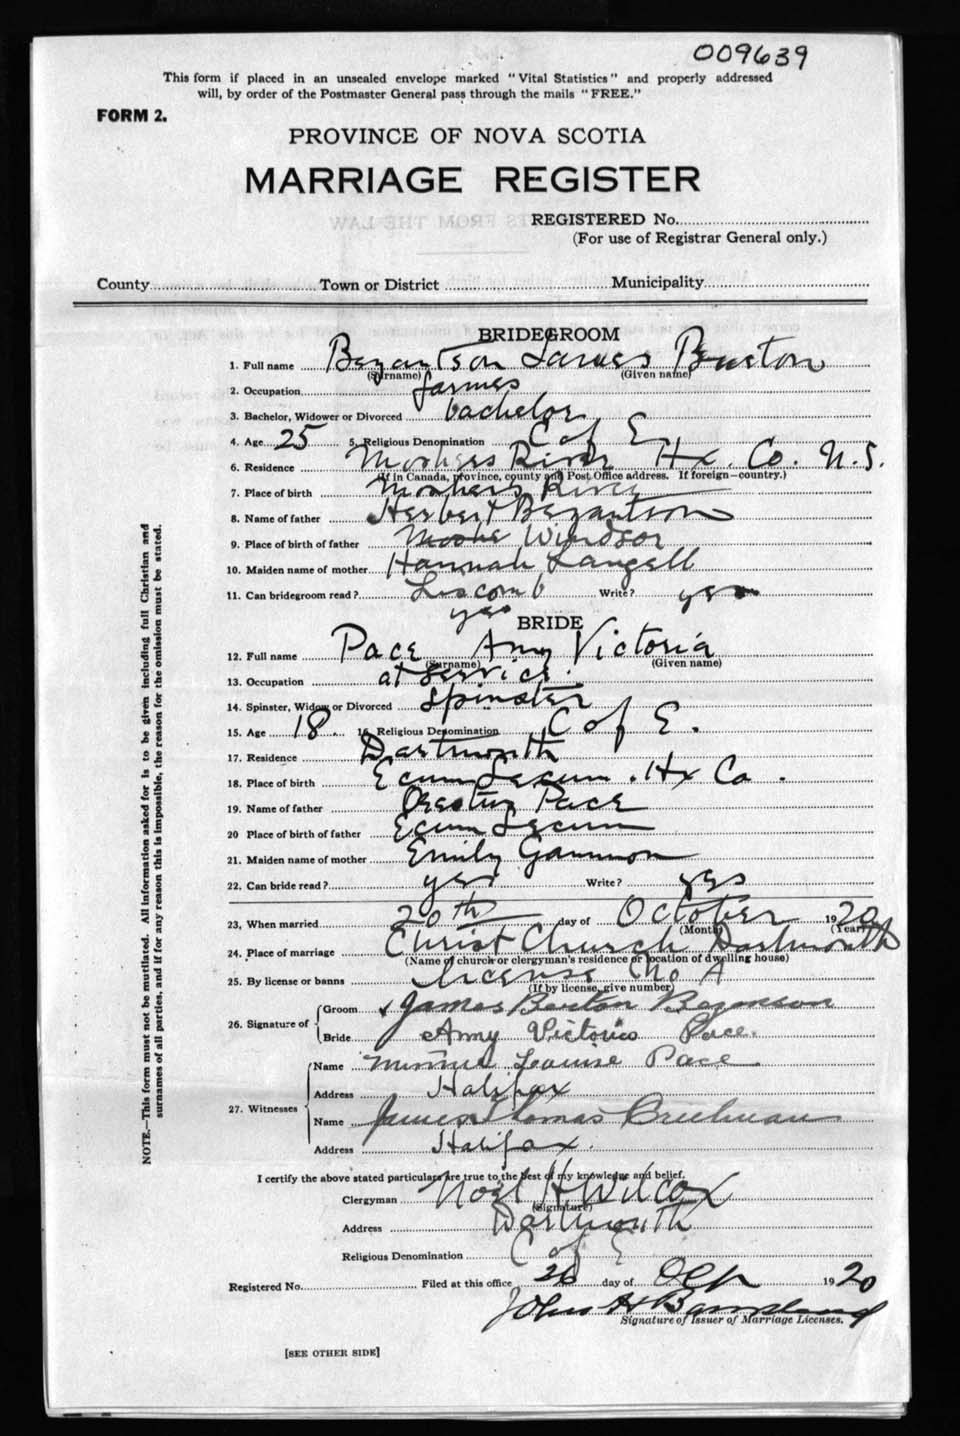 009639
This form if placed in an unsealed envelope marked "Vital Statistics" and properly addressed
will, by order of the Postmaster General pass through the mails "FREE."
FORM 2.
PROVINCE OF NOVA SCOTIA
MARRIAGE REGISTER
REGISTERED No.
(For use of Registrar General only.)
County Town or District Municipality
BRIDEGROOM
1. Full name Bezantson James Burton
(Surname) (Given name)
2. Occupation farmer
3. Bachelor, Widower or Divorced bachelor
4. Age 25 5. Religious Denomination C of E
6. Residence Moshers River Hx. Co. N.S.
(If in Canada, province, county and Post Office address. If foreign—country.)
7. Place of birth Moshers River
8. Name of father Herbert Bezantson
9. Place of birth of father Windsor
10. Maiden name of mother Hannah Langell
Liscomb
11. Can bridegroom read? yes Write? yes
BRIDE
12. Full name Pace Amy Victoria
(Surname) (Given name)
13. Occupation at service.
14. Spinster, Widow or Divorced Spinster
15. Age 18. 16. Religious Denomination C of E.
17. Residence Dartmouth
18. Place of birth Ecum Secum. Hx Co.
19. Name of father Pace
20 Place of birth of father Ecum Secum
21. Maiden name of mother Emily Gammon
22. Can bride read? yes Write? yes
23. When married 20th day of October 1920
(Month) (Year)
24. Place of marriage Christ Church Dartmouth
(Name of church or clergyman's residence or location of dwelling house)
25. By license or banns license No A
(If by license, give number)
26. Signature of Groom James Burton Bezanson
Bride Amy Victoria Pace.
27. Witnesses Name Minnie Louise Pace
Address Halifax
Name James Thomas Creelman
Address Halifax.
I certify the above stated particulars are true to the best of my knowledge and belief.
Clergyman Noel H Wilcox
(Signature)
Address Dartmouth
Religious Denomination C of E
Registered No. Filed at this office 26 day of 1920
John H
Signature of Issuer of Marriage Licenses.
[SEE OTHER SIDE]
NOTE.—This form must not be mutilated. All information asked for is to be given including full Christian and
surnames of all parties, and if for any reason this is impossible, the reason for the omission must be stated.